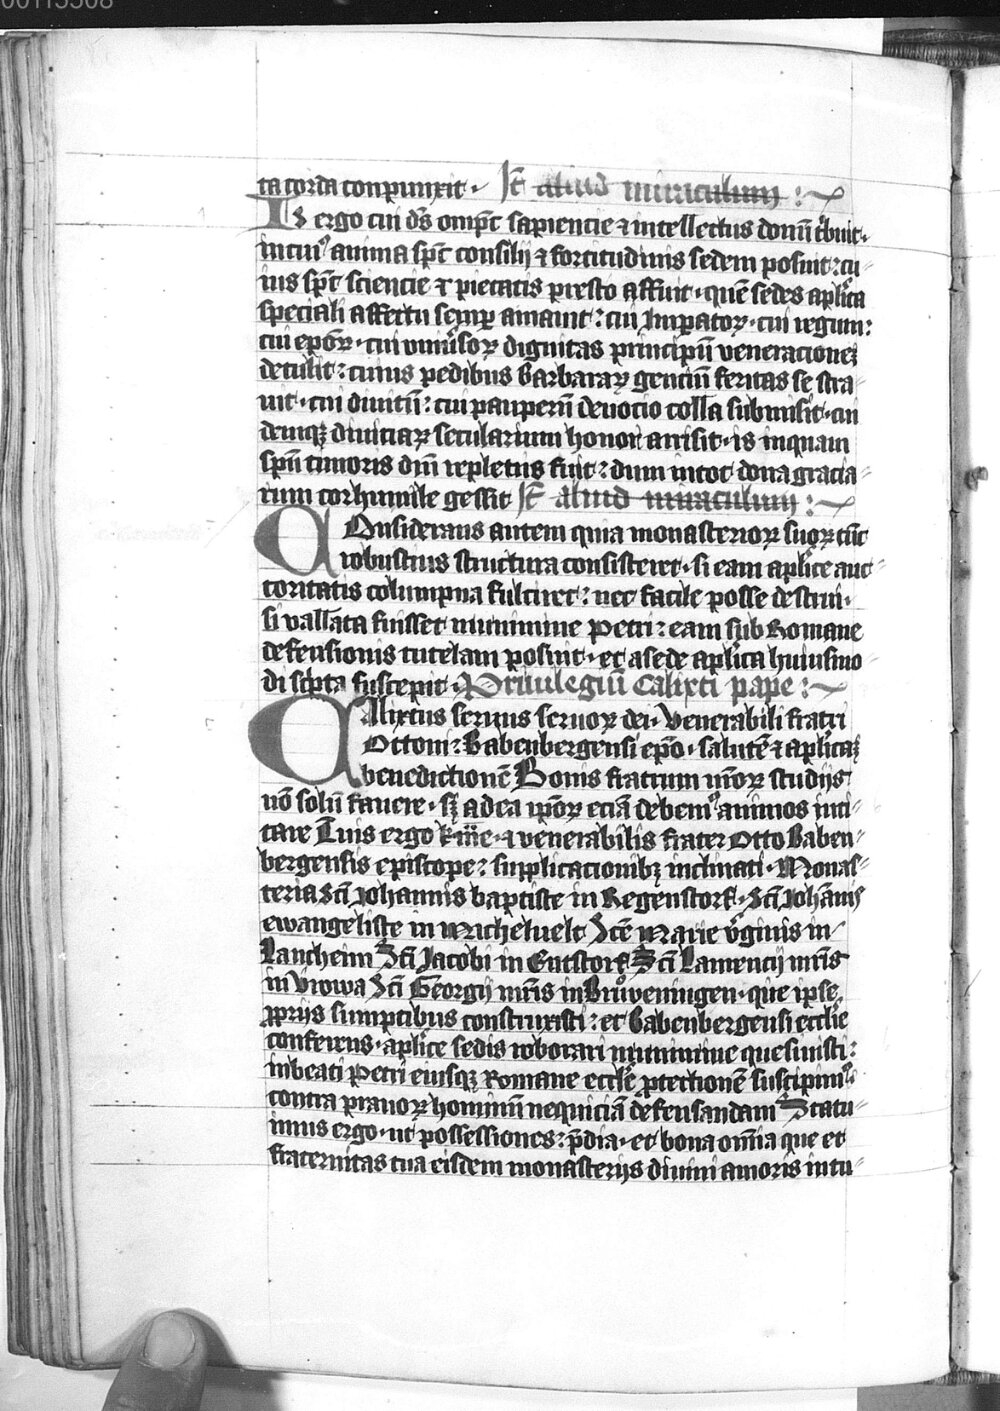 00115508
ta corda conpunxit · Jt̄ aliud miraculum :~
Is ergo cui ds̄ omp̄t sapiencie ⁊ intellectus donū tͥbuit·
in cuiꝰ anima spc̄ consilij ⁊ fortitudinis sedem posuit: cu⸗
ius spc̄ sciencie ⁊ pietatis presto affuit · quē sedes aplīca
speciali affectu semꝑ amauit: cui Imꝑatoꝝ · cui regum:
cui epōꝝ · cui uniuͥsoꝝ dignitas principū veneracionē
detulit: cuius pedibus barbaraꝝ genciū feritas se stra⸗
uit · cui diuitū: cui pauperū deuocio colla submisit · cui
deniqꝫ diuiciaꝝ secularium honor arrisit · is inquam
spū timoris dn̄i repletus fuit: dum in tot dona gracia⸗
rum cor humile gessit Jt̄ aliud miraculum :~
COnsiderans autem quia monasterioꝝ suoꝝ tūc
robustius structura consisteret · si eam aplīce auc⸗
toritatis columpna fulciret: nec facile posse destrui·
si vallata fuisset munimine Petri: eam sub Romane
defensionis tutelam posuit · et a sede aplīca huiusmo⸗
di scͥpta suscepit · Priuilegiū Calixti pape :~
CAlixtus seruus seruoꝝ dei · Venerabili fratri
Ottoni: Babenbergensi epō · salutē ⁊ aplīcaꝫ
benedictionē Bonis fratrum nr̄oꝝ studijs
nō solū fauere · sꝫ ad ea ip̄oꝝ eciā debemꝰ animos inci⸗
tare Tuis ergo kr̄me · ⁊ venerabilis frater Otto Baben⸗
bergensis episcope: supplicacionibꝫ inclinati · Monas⸗
teria Sc̄i Johannis baptiste in Regenstorf · Sc̄i Joh̄anīs
ewangeliste in Micheluelt Sc̄e Marie vͥginis in⸗
Lancheim Sc̄i Jacobi in Entstorf Sc̄i Laurencij mr̄is
in Vrowa Sc̄i Georgij mr̄is in Bruͦueningen · que ipse
ꝓprijs sumptibus construxisti: et Babenbergensi eccl̄ie
conferens · aplīce sedis roborari munimine quesiuisti:
in beati Petri eiusqꝫ Romane eccl̄e ꝓtectionē suscipimꝰ
contra prauoꝝ hominū nequiciā defensandam Statu⸗
imus ergo · ut possessiones: p̄dia · et bona omīa que et
fraternitas tua eisdem monasterijs diuini amoris intu⸗